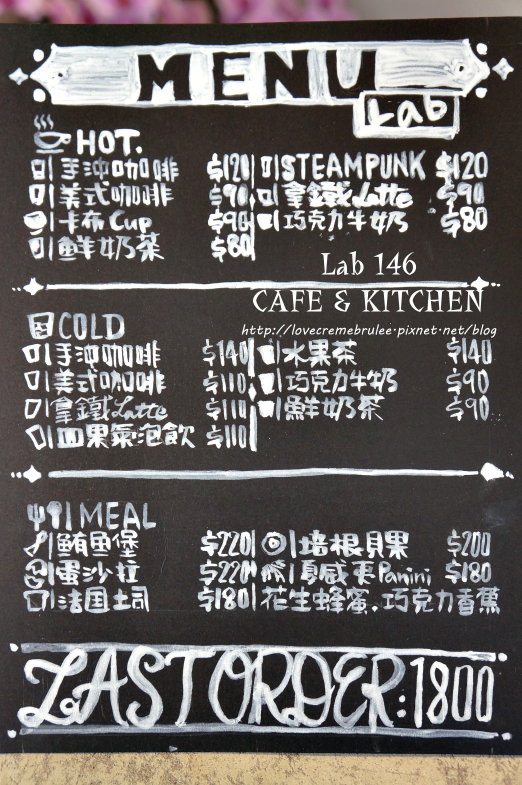 MENU
Lab
HOT.
手沖咖啡 $120 STEAMPUNK $120
美式咖啡 $90 拿鐵Latte $90
卡布Cup $90 巧克力牛奶 $80
鮮奶茶 $80
Lab 146
CAFE & KITCHEN
http://lovecremebrulee.pixnet.net/blog
COLD
手沖咖啡 $140 水果茶 $140
美式咖啡 $110 巧克力牛奶 $90
拿鐵Latte $110 鮮奶茶 $90
果氣泡飲 $110
MEAL
鮪魚堡 $220 培根貝果 $200
蛋沙拉 $220 夏威夷Panini $180
法国土司 $180 花生蜂蜜.巧克力香蕉
LAST ORDER:1800